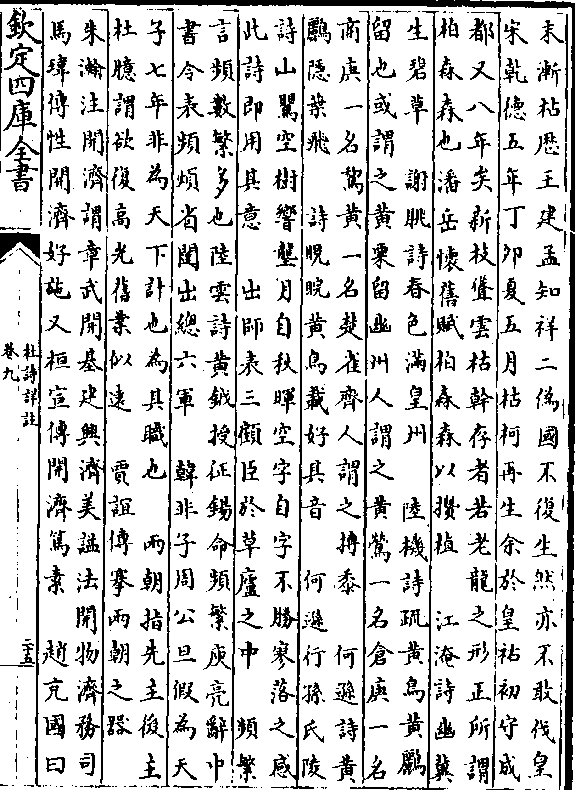 末漸枯歴王建孟知祥二偽國不復生然亦不敢伐皇
宋乾徳五年丁卯夏五月枯柯再生余於皇祐初守成
都又八年矣新枝聳雲枯幹存者若老龍之形正所謂
柏森森也潘岳懷舊賦柏森森以攢植　江淹詩幽冀
生碧草　謝朓詩春色滿皇州　陸機詩疏黄鳥黄鸝
留也或謂之黄栗留幽州人謂之黄鶯一名倉庚一名
商庚一名鵹黄一名楚雀齊人謂之搏黍　何遜詩黄
鸝隠葉飛　詩睍睆黄鳥載好其音　何遜行孫氏陵
詩山鶯空樹響壟月自秋暉空字自字不勝寥落之感
此詩即用其意　出師表三顧臣於草廬之中　頻繁
言頻數繁多也陸雲詩黄鉞授征錫命頻繁庾亮辭中
書令表頻煩省闥出總六軍　韓非子周公旦假為天
子七年非為天下計也為其職也　兩朝指先主後主
杜臆謂欲復高光舊業似遠　賈誼傳搴兩朝之器
朱瀚注開濟謂章武開基建興濟美諡法開物濟務司
馬瑋傳性開濟好施又桓宣傳開濟篤素　趙充國曰
欽定四庫全書
杜詩詳註
卷九
二十五